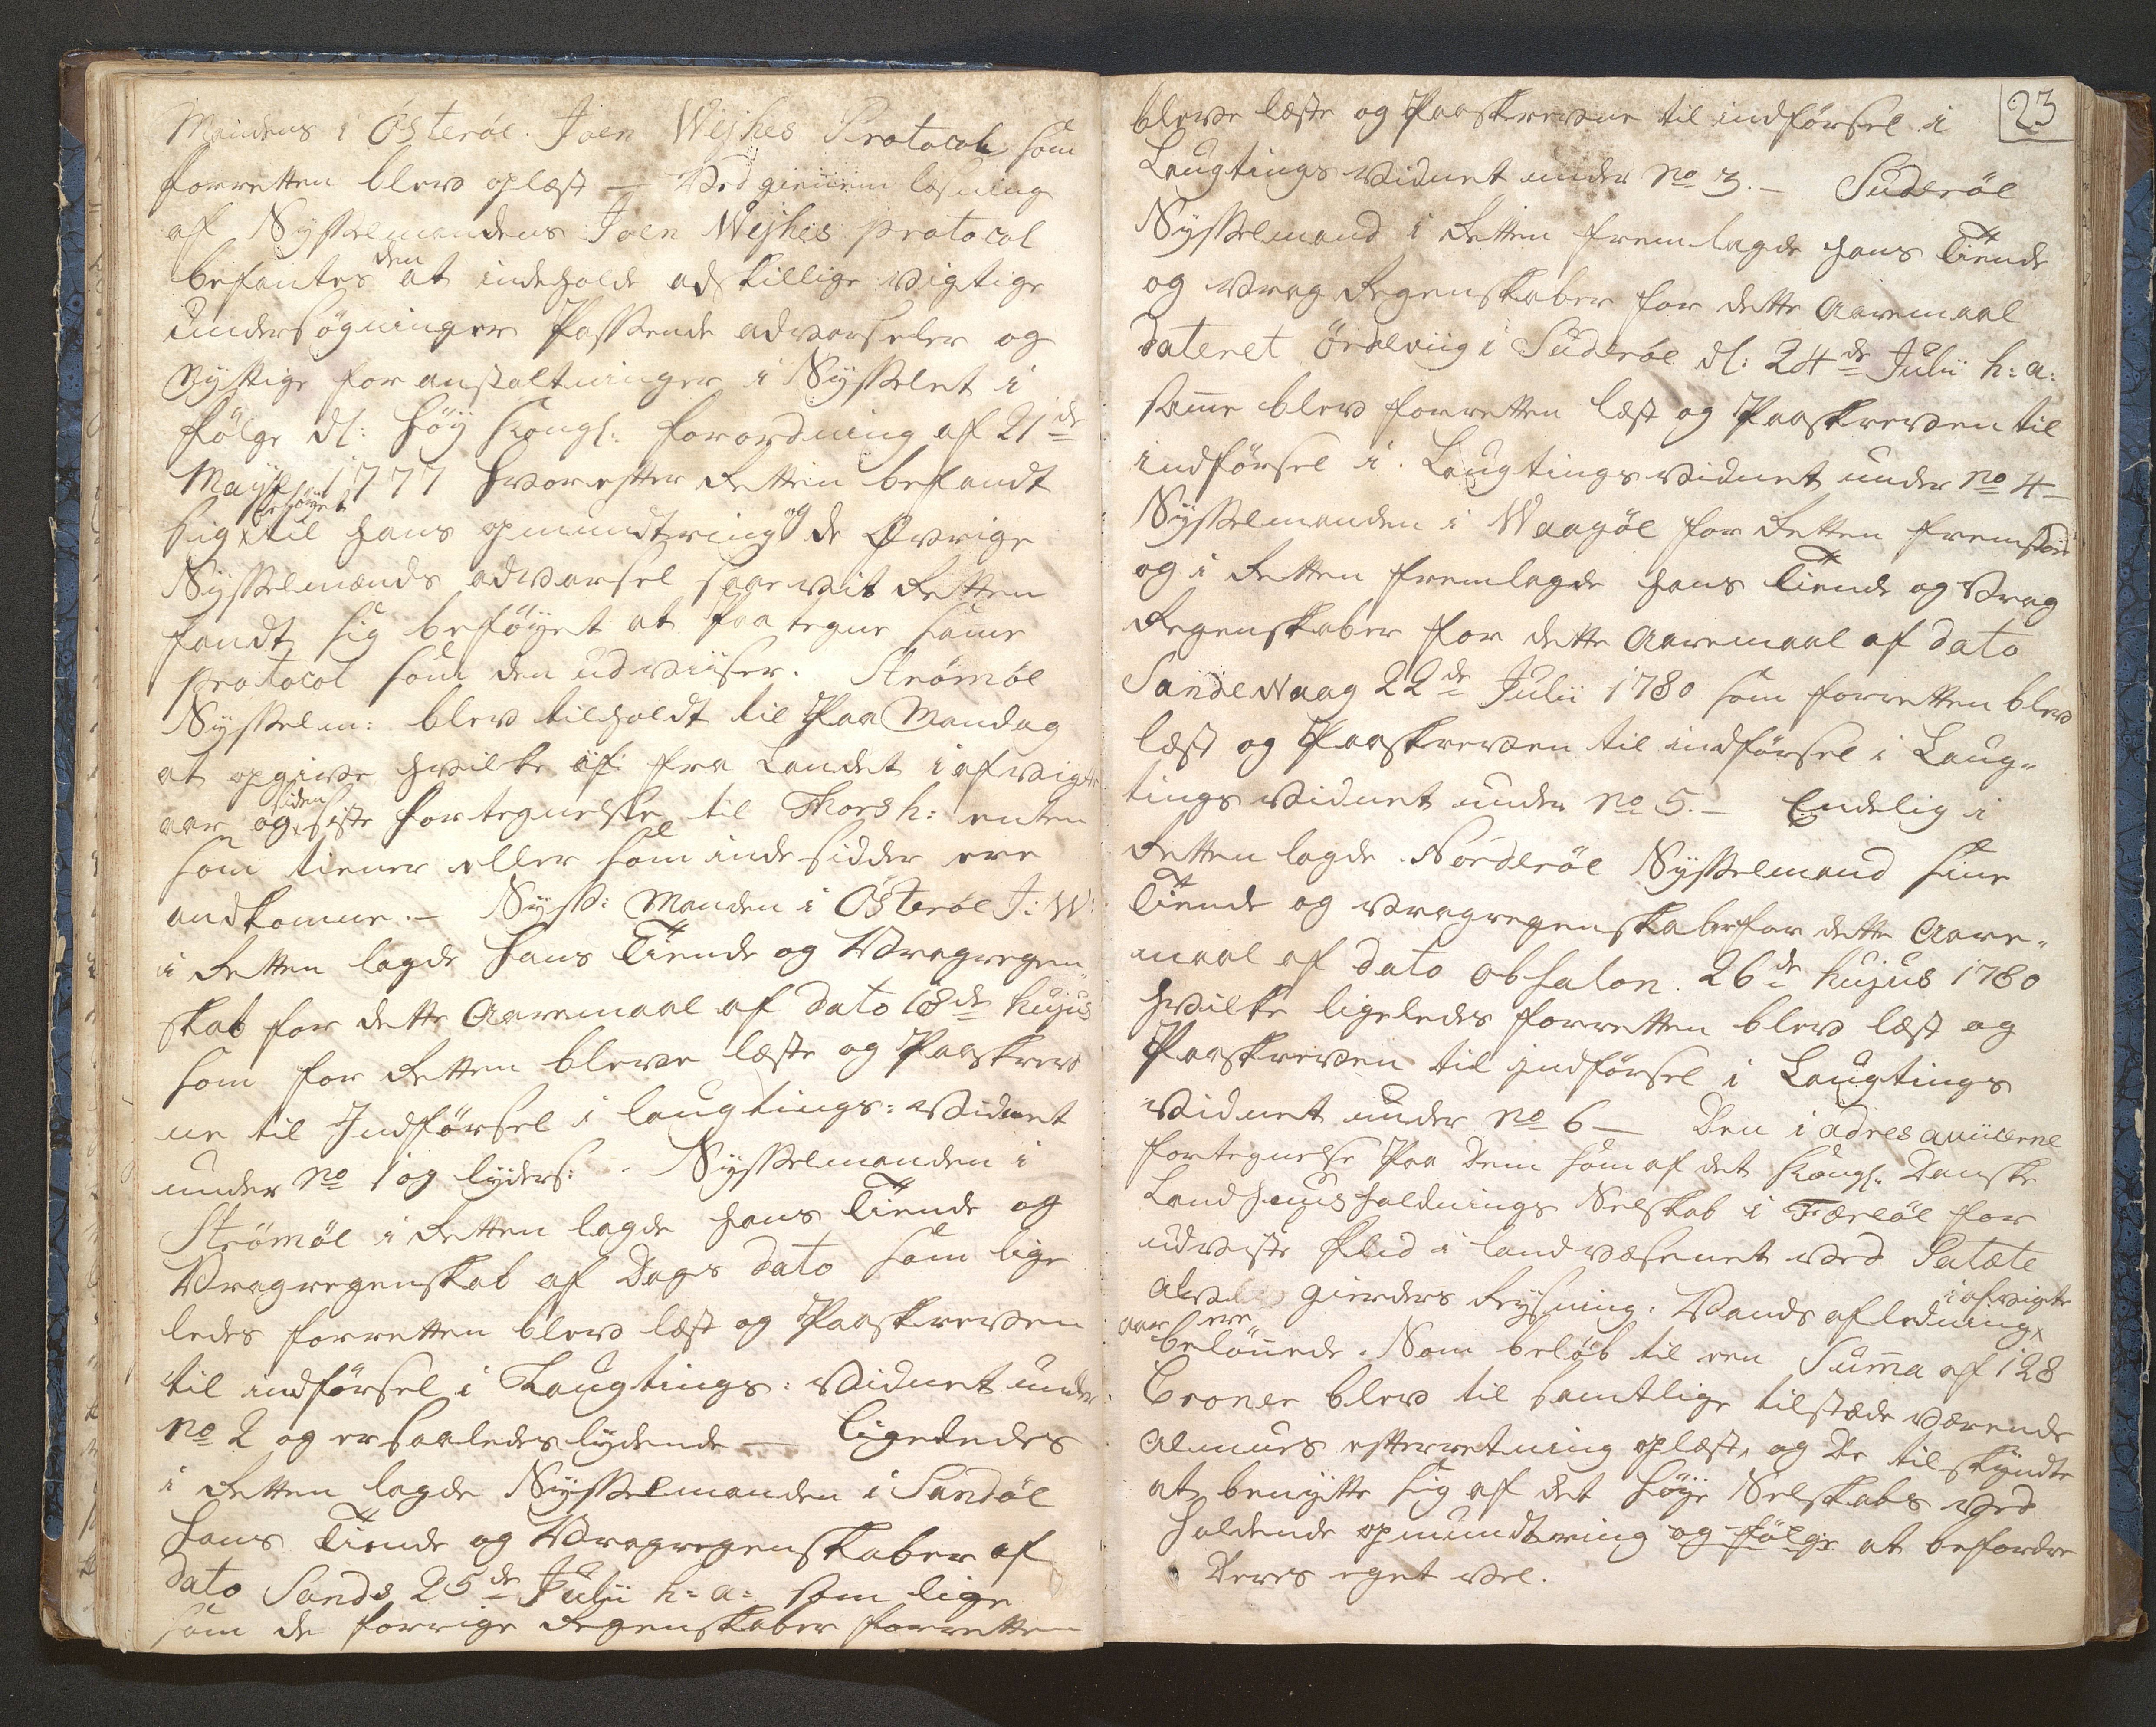 Mandens i Österöe. Joen Wejhes Protocol som
forretten blev oplæst — Ved gienem læsning
af Sysselmandens Joen Wejhes protocol
befantes den at indeholde adskillige vigtige
undersøgninger Passende advarseler og
nyttige foranstaltninger i Sysselet i
følge d: høy Kongl: forordning af 21de
Maÿ 1777 hvorefter Retten befandt
sig beføyet til hans opmundtring og de Øvrige
Sysselmænds advarsel saavit Retten
fandt sig beføyet at paategne same
protocol som den udviiser. Strömöe
Sysselm: blev tilholdt til Paa Mandag
at opgive hvilke fra Landet i afvigte
aar og siden siste fortegnelse til Thorsh: enten
som tiener eller som inde sidder ere
andkomne. — Syss: Manden i Österöe J: W:
i Retten lagde hans Tiende og Vragregen„
skab for dette Aaremaal af dato 18de hujus
som for Retten bleve læste og Paaskrev
ne til Indførsel i laugtings: Vidnet
under No 1 og lyder: Sysselmanden i
Strömöe i Retten lagde hans Tiende og
Vragregenskab af Dags dato som lige
ledes forretten blev læst og Paaskreven
til indførsel i Laugtings: Vidnet under
No 2 og er saaledes lydende — ligeledes
i Retten lagde Sysselmanden i Sandöe
hans Tiende og Vragregenskaber af
dato Sands 25de Julii h: a: som lige
som de forrige Regenskaber forretten
23
bleve læste og Paaskrevene til indførsel i
Laugtings Vidnet under No 3. — Suderöe
Sysselmand i Retten fremlagde hans Tiende
og Vrag Regenskaber for dette Aaremaal
dateret Ördeviig i Suderöe d: 24de Julii h: a:
same blev forretten læst og Paaskreven til
indførsel i Laugtings vidnet under No 4 —
Sysselmanden i Waagöe for Retten fremstod
og i Retten fremlagde hans Tiende og Vrag
Regenskaber for dette Aaremaal af dato
Sandewaag 22de Julii 1780 som forretten blev
læst og Paaskreven til indførsel i Laug„
tings Vidnet under No 5. — Endelig i
Retten lagde Norderöe Sysselmand sine
Tiende og Vragregenskaber for dette Aare„
maal af dato obsalon 26de hujus 1780
hvilke ligeledes forretten blev læst og
Paaskreven til Indførsel i Laugtings
Vidnet under No 6 — Den i adresaviserne
fortegnelse Paa Dem som af det Kongl: Danske
Land huusholdnings Selskab i Færöe for
udviste flid i landvæsenet ved Patæte
Avl gierders Reysning: Vands afledning i afvigte
aar ere belönede. Som beløb til een Suma af 128
Croner blev til samtlige tilstæde værende
Almues efterretning oplæst, og De tilskyndte
at benytte sig af det høye Selskabs ved
holdende opmundtring og følge at befordre
Deres eget vel.